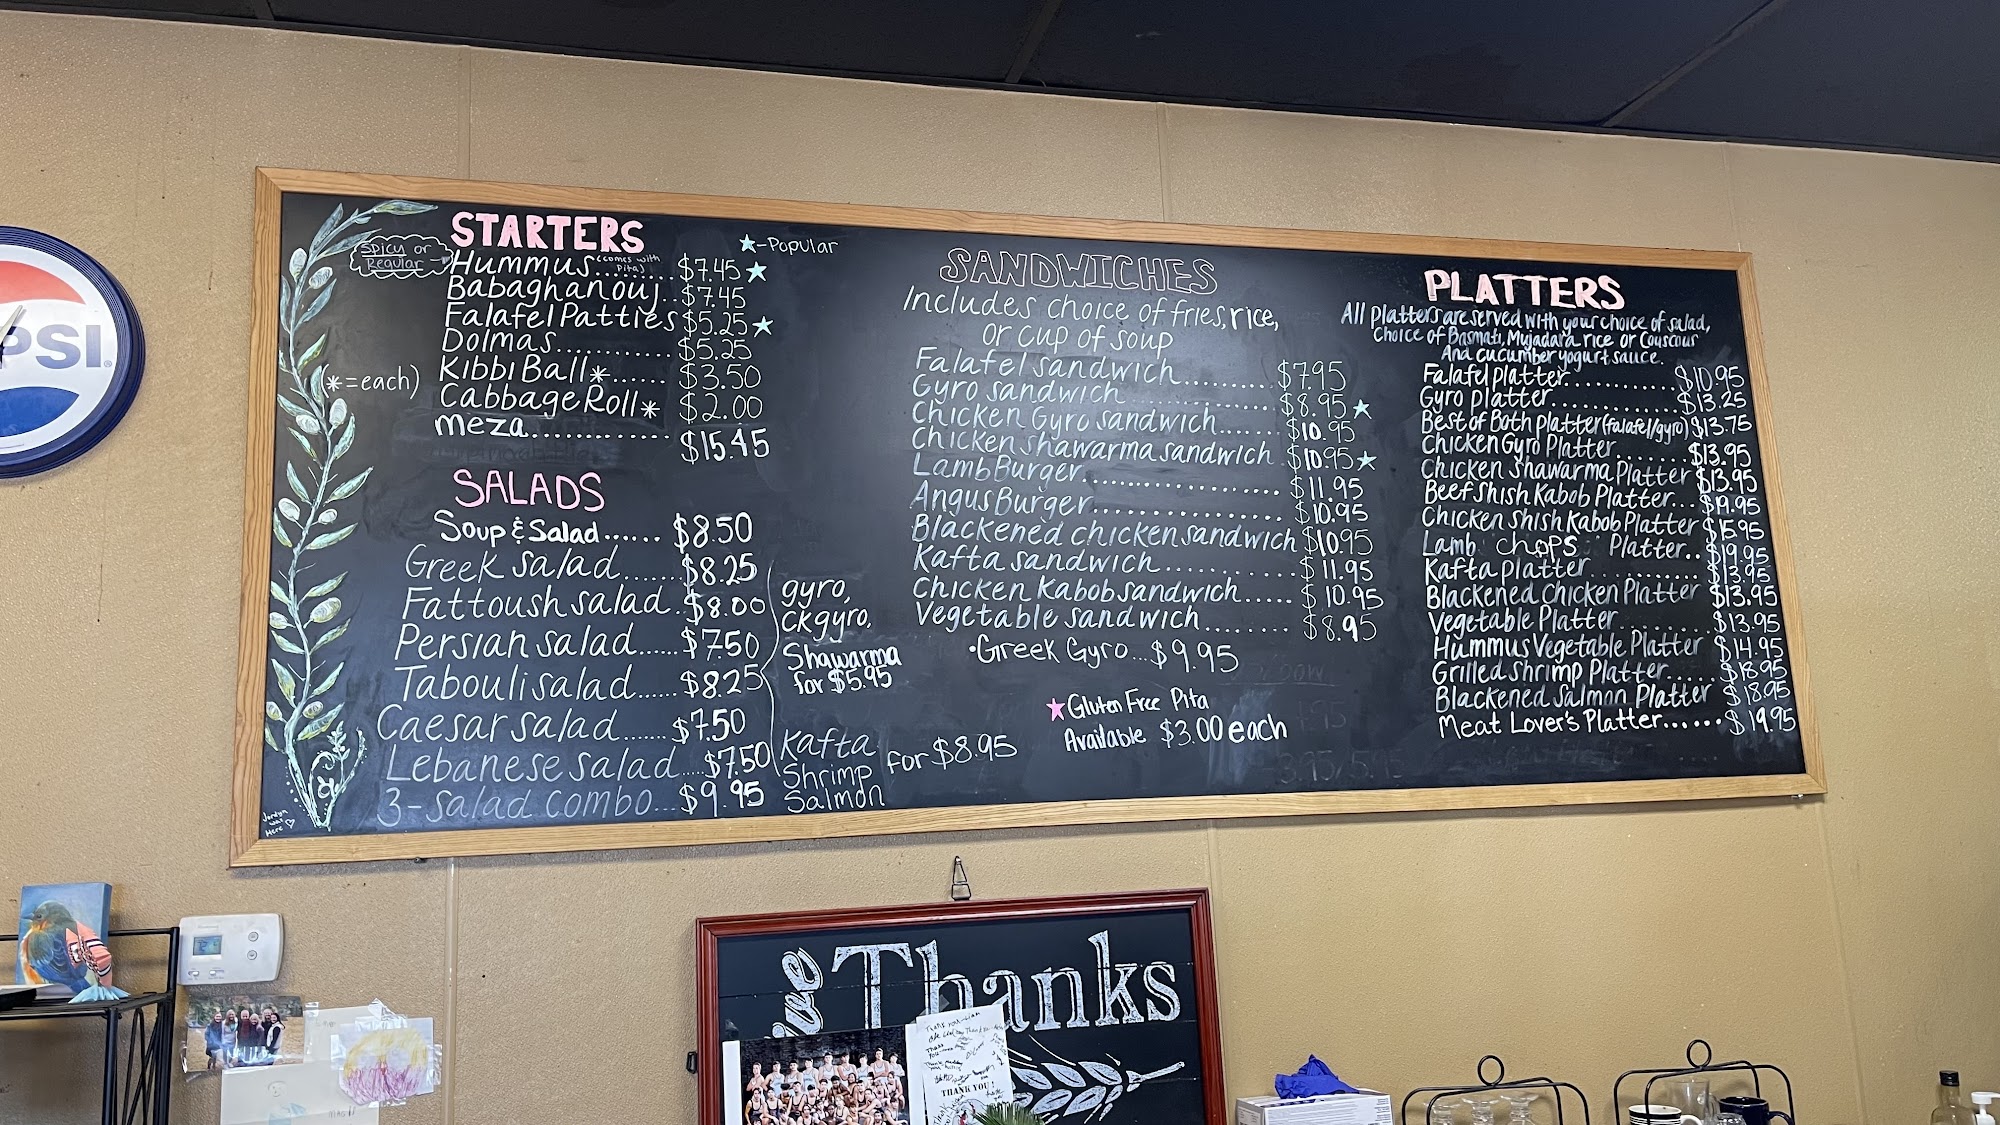 PSI
STARTERS
★-Popular
Spicy or
Regular
Hummus (comes with Pita)........ $7.45 ★
Babaghanouj.. $7.45
Falafel Patties $5.25 ★
Dolmas............ $5.25
Kibbi Ball*...... $3.50
(*=each)
Cabbage Roll* $2.00
meza.............. $15.45
SALADS
Soup & Salad...... $8.50
Greek salad...... $8.25
Fattoush salad.. $8.00
Persian salad...... $7.50
Tabouli salad...... $8.25
Caesar salad....... $7.50
Lebanese salad.... $7.50
3-salad combo... $9.95
gyro,
ckgyro,
Shawarma
for $5.95
Kafta
Shrimp
Salmon
for $8.95
Jordyn
was
Here ♡
SANDWICHES
Includes choice of fries, rice,
or cup of soup
Falafel sandwich.......... $7.95
Gyro sandwich.................. $8.95 ★
Chicken Gyro sandwich....... $10.95
Chicken shawarma sandwich. $10.95 ★
Lamb Burger..................... $11.95
Angus Burger.................... $10.95
Blackened chicken sandwich $10.95
Kafta sandwich............. $11.95
Chicken Kabob sandwich..... $10.95
Vegetable sandwich........ $8.95
•Greek Gyro...$9.95
★Gluten Free Pita
Available $3.00 each
PLATTERS
All platters are served with your choice of salad,
Choice of Basmati, Mujadara rice or Couscous
And cucumber yogurt sauce.
Falafel platter............ $10.95
Gyro platter............... $13.25
Best of Both platter (falafel/gyro) $13.75
Chicken Gyro Platter........ $13.95
Chicken Shawarma Platter $13.95
Beef Shish Kabob Platter... $19.95
Chicken Shish Kabob Platter $15.95
Lamb chops Platter.. $19.95
Kafta platter........... $13.95
Blackened chicken Platter $13.95
Vegetable Platter......... $13.95
Hummus Vegetable Platter $14.95
Grilled Shrimp Platter..... $18.95
Blackened Salmon Platter $18.95
Meat Lover's Platter...... $19.95
Thanks
THANK YOU!